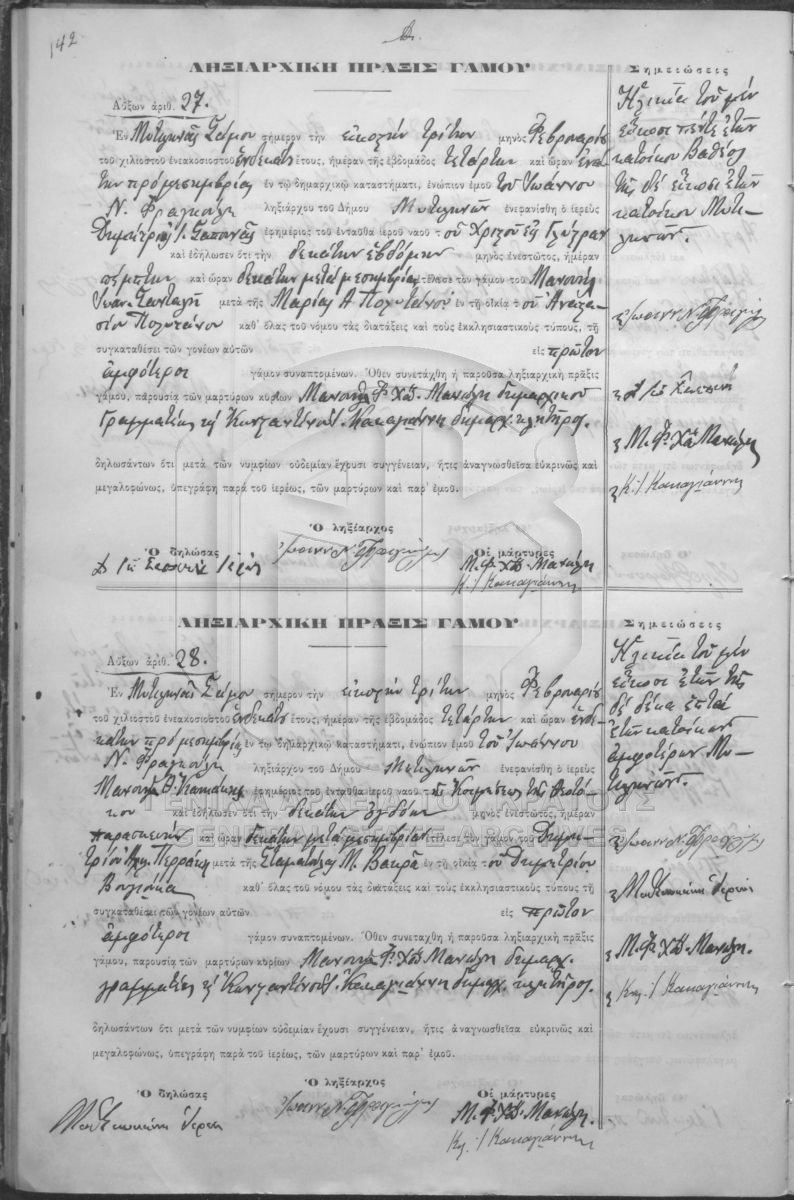 142
ΛΗΞΙΑΡΧΙΚΗ ΠΡΑΞΙΣ ΓΑΜΟΥ
Αὔξων ἀριθ. 27.
Ἐν Μυτιληνιοῖς Σάμου σήμερον τὴν εἰκοστὴν τρίτην μηνὸς Φεβρουαρίου
τοῦ χιλιοστοῦ ἐνεακοσιοστοῦ ἑνδεκάτου ἔτους, ἡμέραν τῆς ἑβδομάδος τετάρτην καὶ ὥραν
την πρὸ μεσημβρίας ἐν τῷ δημαρχικῷ καταστήματι, ἐνώπιον ἐμοῦ τοῦ Ἰωάννου
Ν. Φραγκούλη ληξιάρχου τοῦ Δήμου Μυτιληνιῶν ἐνεφανίσθη ὁ ἱερεὺς
Δημήτριος Ι. ἐφημέριος τοῦ ἐνταῦθα ἱεροῦ ναοῦ τοῦ Χριστοῦ
καὶ ἐδήλωσεν ὅτι τὴν δεκάτην ἑβδόμην μηνὸς ἐνεστῶτος, ἡμέραν
πέμπτην καὶ ὥραν δεκάτην μετὰ μεσημβρίαν ἐτέλεσε τὸν γάμον τοῦ Μανουὴλ
Ἰωαν. μετὰ τῆς Μαρίας Α Πολυτάνου ἐν τῇ οἰκίᾳ τοῦ Ἀναστα-
σίου Πολυτάνου καθ' ὅλας τοῦ νόμου τὰς διατάξεις καὶ τοὺς ἐκκλησιαστικοὺς τύπους, τῇ
συγκαταθέσει τῶν γονέων αὐτῶν εἰς πρῶτον
ἀμφότεροι γάμον συναπτομένων. Ὅθεν συνετάχθη ἡ παροῦσα ληξιαρχικὴ πρᾶξις
γάμου, παρουσίᾳ τῶν μαρτύρων κυρίων Μανουὴλ Φ. Χδ. Μανώλη δημαρχικοῦ
Γραμματέως καὶ Κωνσταντίνου Ι. Κακαγιάννη δημαρχ. κλητῆρος.
δηλωσάντων ὅτι μετὰ τῶν νυμφίων οὐδεμίαν ἔχουσι συγγένειαν, ἥτις ἀναγνωσθεῖσα εὐκρινῶς καὶ
μεγαλοφώνως, ὑπεγράφη παρὰ τοῦ ἱερέως, τῶν μαρτύρων καὶ παρ' ἐμοῦ.
Ὁ ληξίαρχος
Ὁ δηλώσας
Οἱ μάρτυρες
Ἰωάνν. Ν. Φραγκούλης
Μ. Φ. Χδ. Μανώλη
Κ. Ι Κακαγιάννη
Σημειώσεις
Ἡλικία τοῦ μὲν
εἴκοσι πέντε ἐτῶν
κατοίκου Βαθέος
τῆς δὲ εἴκοσι ἐτῶν
κατοίκου Μυτι-
ληνιῶν.
Ἰωάνν. Ν. Φραγκούλης
Μ. Φ. Χδ Μανώλη
Κ. Ι Κακαγιάννη
ΛΗΞΙΑΡΧΙΚΗ ΠΡΑΞΙΣ ΓΑΜΟΥ
Αὔξων ἀριθ. 28.
Ἐν Μυτιληνιοῖς Σάμου σήμερον τὴν εἰκοστὴν τρίτην μηνὸς Φεβρουαρίου
τοῦ χιλιοστοῦ ἐνεακοσιοστοῦ ἑνδεκάτου ἔτους, ἡμέραν τῆς ἑβδομάδος τετάρτην καὶ ὥραν ἑνδε-
κάτην πρὸ μεσημβρίας ἐν τῷ δημαρχικῷ καταστήματι, ἐνώπιον ἐμοῦ τοῦ Ἰωάννου
Ν. Φραγκούλη ληξιάρχου τοῦ Δήμου Μυτιληνιῶν ἐνεφανίσθη ὁ ἱερεὺς
Μανουὴλ ἐφημέριος τοῦ ἐνταῦθα ἱεροῦ ναοῦ τῆς Κοιμήσεως τῆς Θεοτό-
κου καὶ ἐδήλωσεν ὅτι τὴν δεκάτην ὀγδόην μηνὸς ἐνεστῶτος, ἡμέραν
παρασκευὴν καὶ ὥραν δεκάτην μετὰ μεσημβρίαν ἐτέλεσε τὸν γάμον τοῦ Δημη-
τρίου Περράκη μετὰ τῆς Σταματούλας Μ. Βακρᾶ ἐν τῇ οἰκίᾳ τοῦ Δημητρίου
καθ' ὅλας τοῦ νόμου τὰς διατάξεις καὶ τοὺς ἐκκλησιαστικοὺς τύπους τῇ
συγκαταθέσει τῶν γονέων αὐτῶν εἰς πρῶτον
ἀμφότεροι γάμον συναπτομένων. Ὅθεν συνετάχθη ἡ παροῦσα ληξιαρχικὴ πρᾶξις
γάμου, παρουσίᾳ τῶν μαρτύρων κυρίων Μανουὴλ Φ. Χδ Μανώλη δημαρχ.
γραμματέως καὶ Κωνσταντίνου Ι. Κακαγιάννη δημαρχ. κλητῆρος.
δηλωσάντων ὅτι μετὰ τῶν νυμφίων οὐδεμίαν ἔχουσι συγγένειαν, ἥτις ἀναγνωσθεῖσα εὐκρινῶς καὶ
μεγαλοφώνως, ὑπεγράφη παρὰ τοῦ ἱερέως, τῶν μαρτύρων καὶ παρ' ἐμοῦ.
Ὁ ληξίαρχος
Ὁ δηλώσας
Οἱ μάρτυρες
Ἰωάνν. Ν. Φραγκούλης
Μ. Φ. Χδ. Μανώλη.
Κ. Ι Κακαγιάννη
Σημειώσεις
Ἡλικία τοῦ μὲν
εἴκοσι ἐτῶν τῆς
δὲ δέκα ἑπτὰ
ἐτῶν κατοίκων
ἀμφοτέρων Μυ-
τιληνιῶν.
Ἰωάνν. Ν. Φραγκούλης
Μ. Φ. Χδ. Μανώλη.
Κ. Ι Κακαγιάννη
ΓΕΝΙΚΑ ΑΡΧΕΙΑ ΤΟΥ ΚΡΑΤΟΥΣ